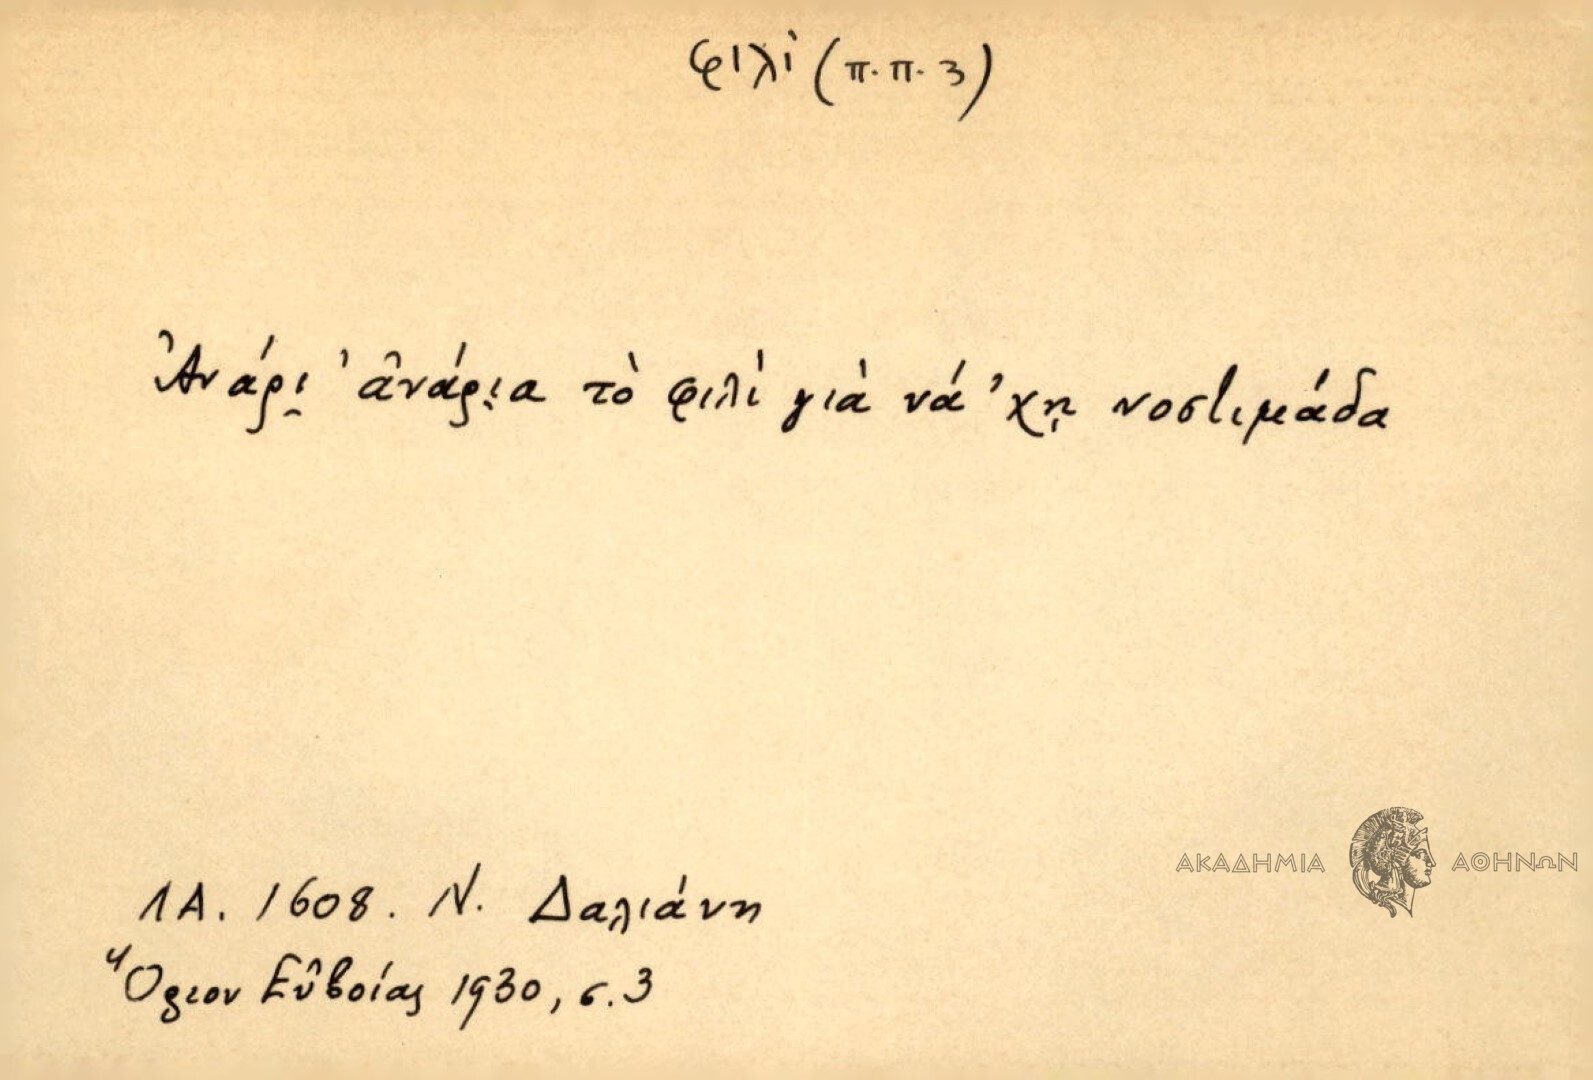 φιλὶ (π.π. 3)
Ἀνάρι̯ ' ἀνάρι̯α τὸ φιλὶ γιὰ νά 'χῃ νοστιμάδα
ΛΑ. 1608. Ν. Δαλιάνη
Ὄριον Εὐβοίας 1930, σ. 3
ΑΚΑΔΗΜΙΑ ΑΘΗΝΩΝ